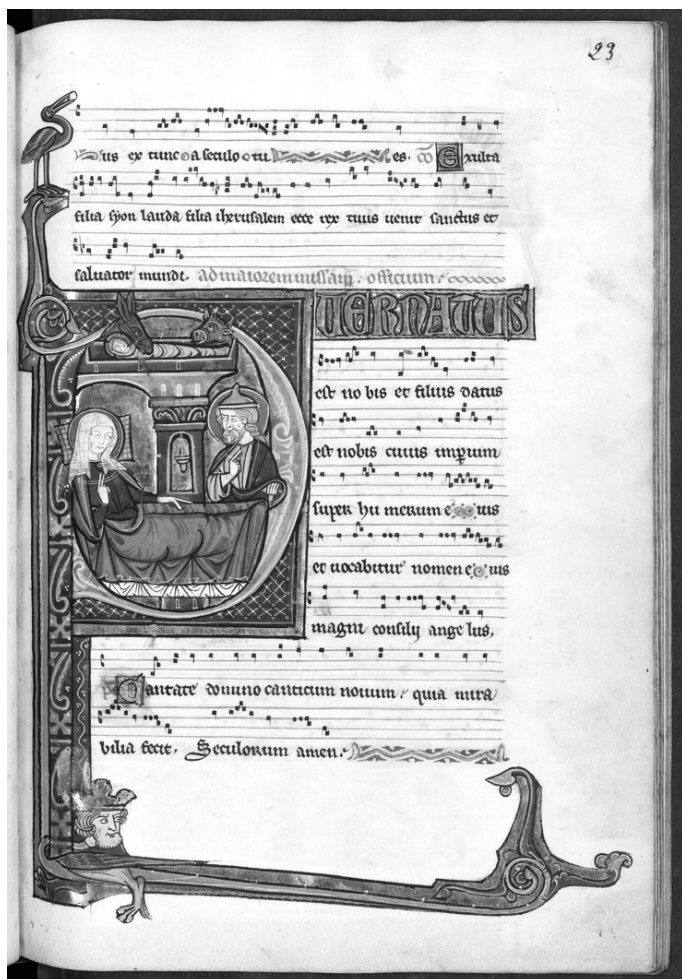 23
us ex tunc a seculo tu es. Exulta
filia syon lauda filia iherusalem ecce rex tuus uenit sanctus et
saluator mundi. ad maiorem missam. officium.
TERNATUS
est no bis et filius datus
est nobis cuius imperium
super hu merum e ius
et uocabitur nomen e ius
magni consilij ange lus,
Cantate domino canticum nouum. quia mira
bilia fecit. Seculorum amen.